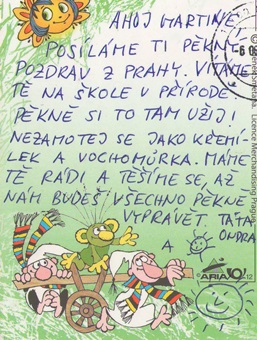 AHOJ MARTINE,
POSÍLÁME TI PĚKNÝ
POZDRAV Z PRAHY. VÍTÁME
TĚ NA ŠKOLE V PŘÍRODĚ.
PĚKNĚ SI TO TAM UŽIJ!
NEZAMOTEJ SE JAKO KŘEMÍ-
LEK A VOCHOMŮRKA. MÁME
TĚ RÁDI A TĚŠÍME SE, AŽ
NÁM BUDEŠ VŠECHNO PĚKNĚ
VYPRÁVĚT. TÁTA
A ONDRA
ARIA
Licence Merchandising Prague